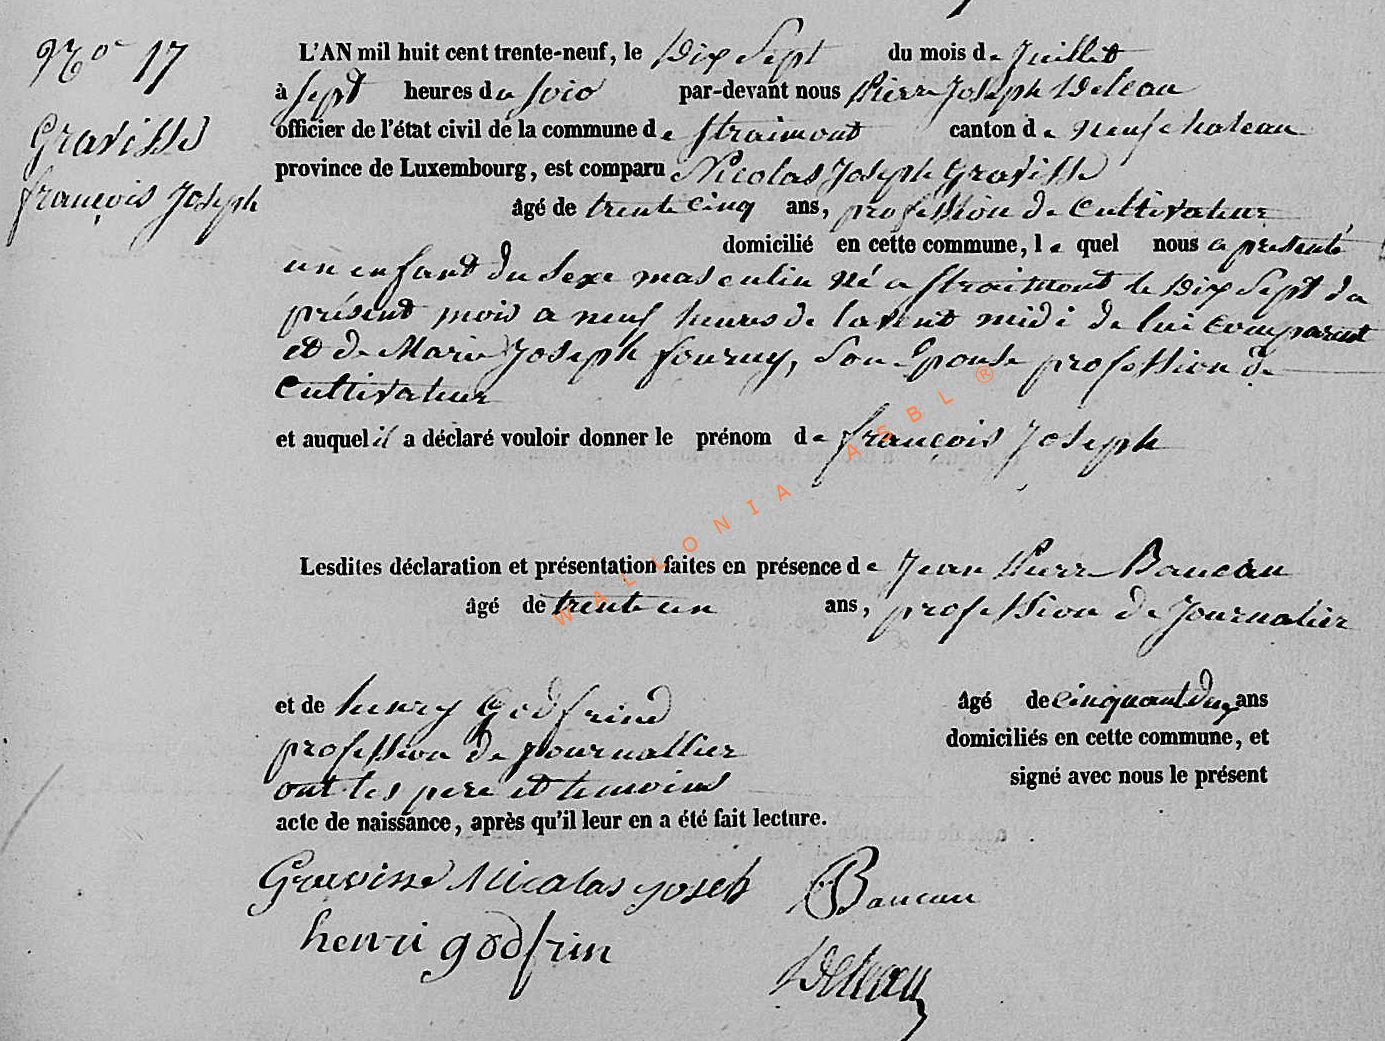 No 17
Gravisse
françois Joseph
L'AN mil huit cent trente-neuf, le Dix Sept du mois de Juillet
à sept heures du soir par-devant nous Pierre Joseph Deleau
officier de l'état civil de la commune de Straimont canton de neufchateau
province de Luxembourg, est comparu Nicolas Joseph Gravisse
âgé de trente cinq ans, profession de Cultivateur
domicilié en cette commune, le quel nous a presenté
un enfant du Sexe masculin né a Straimont le Dix Sept du
présent mois a neuf heures de lavent midi de lui comparant
et de Marie Joseph fourny, Son Epouse profession de
Cultivateur
et auquel il a déclaré vouloir donner le prénom de françois Joseph
Lesdites déclaration et présentation faites en présence de Jean Pierre Baucau
âgé de trente un ans, profession de Journalier
et de henry Godfrind âgé de cinquant deux ans
profession de journallier domiciliés en cette commune, et
ont les pere et temoins signé avec nous le présent
acte de naissance, après qu'il leur en a été fait lecture.
Gravisse Nicolas joseph Baucau
henri godfrin Deleau
WALLONIA ASBL ®